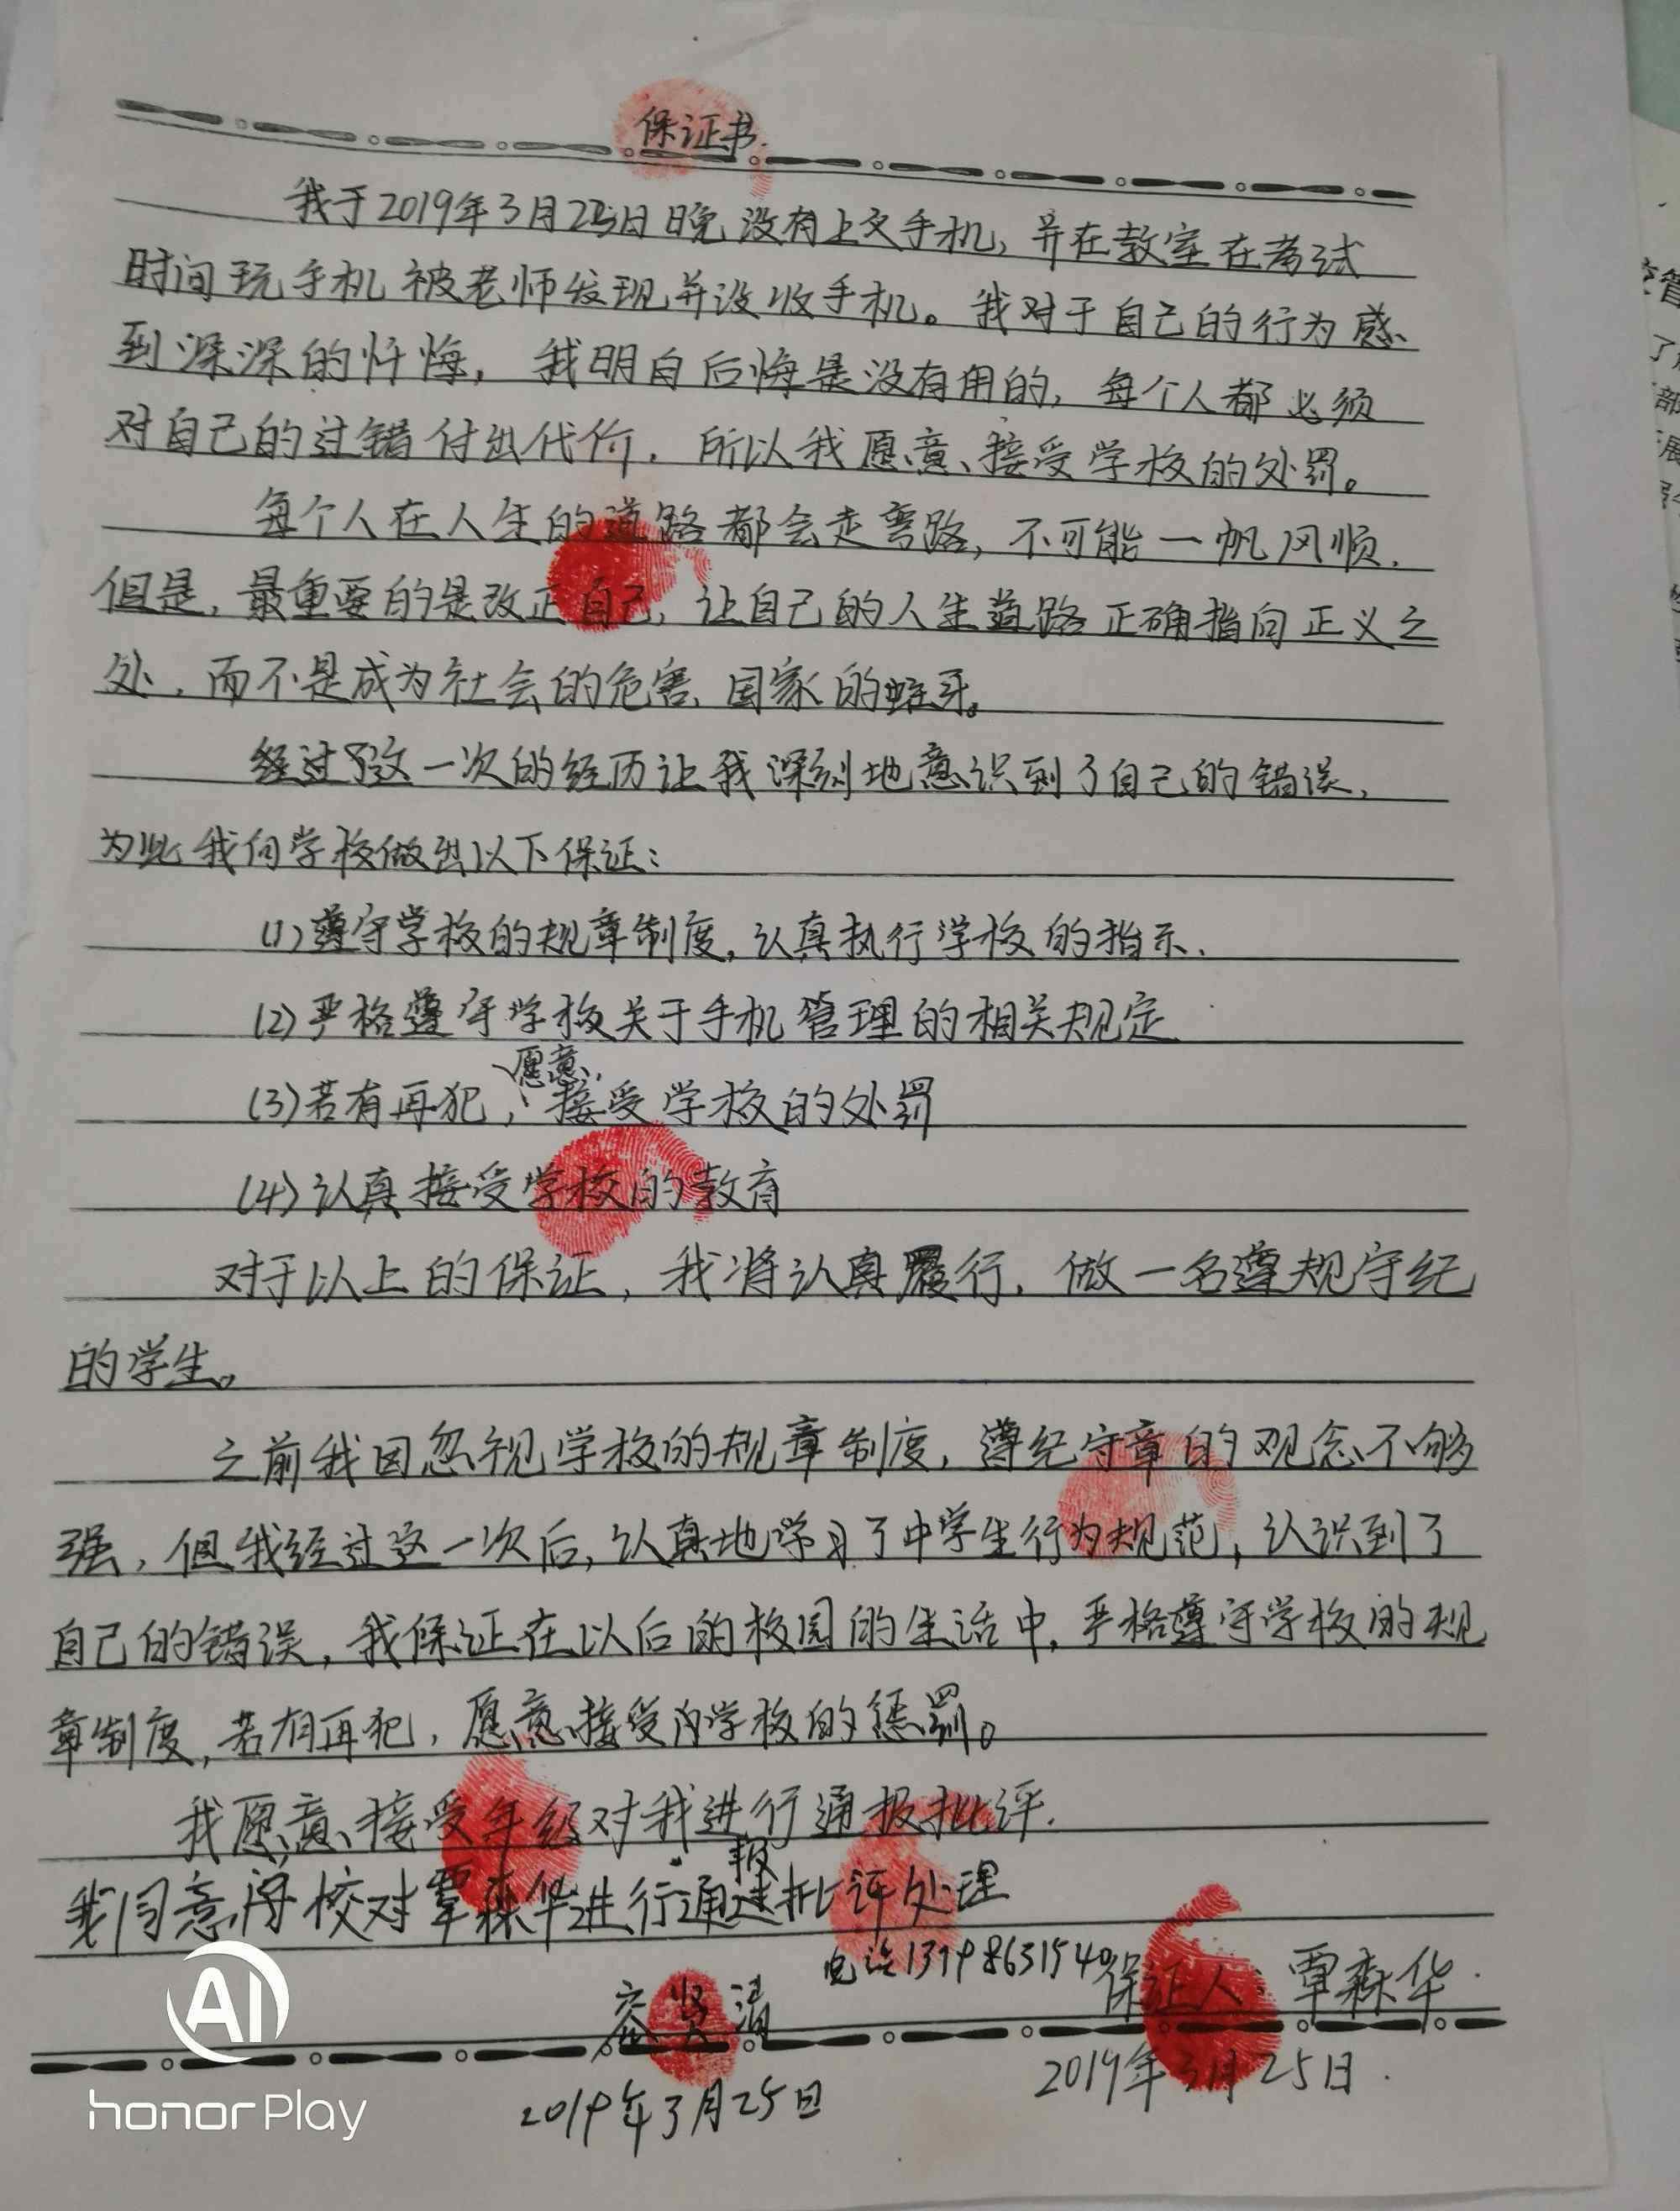 保证书.
我于2019年3月25日晚没有上交手机,并在教室在考试
时间玩手机被老师发现并没收手机。我对于自己的行为感
到深深的忏悔,我明白后悔是没有用的,每个人都必须
对自己的过错付出代价.所以我愿意接受学校的处罚。
每个人在人生的道路都会走弯路,不可能一帆风顺.
但是,最重要的是改正自己,让自己的人生道路正确指向正义之
处,而不是成为社会的危害、国家的蛀牙。
经过了这一次的经历让我深刻地意识到了自己的错误,
为此我向学校做出以下保证:
(1)遵守学校的规章制度,认真执行学校的指示.
(2)严格遵守学校关于手机管理的相关规定
(3)若有再犯,愿意接受学校的处罚
(4)认真接受学校的教育
对于以上的保证,我将认真履行,做一名遵规守纪
的学生。
之前我因忽视学校的规章制度,遵纪守章的观念不够
强,但我经过这一次后,认真地学习了中学生行为规范,认识到了
自己的错误,我保证在以后的校园的生活中,严格遵守学校的规
章制度,若有再犯,愿意接受内学校的惩罚。
我愿意接受年级对我进行通报批评.
我同意学校对覃森华进行通报批评处理
电话
保证人:覃森华.
2019年3月25日.
2019年3月25日
AI
honor Play